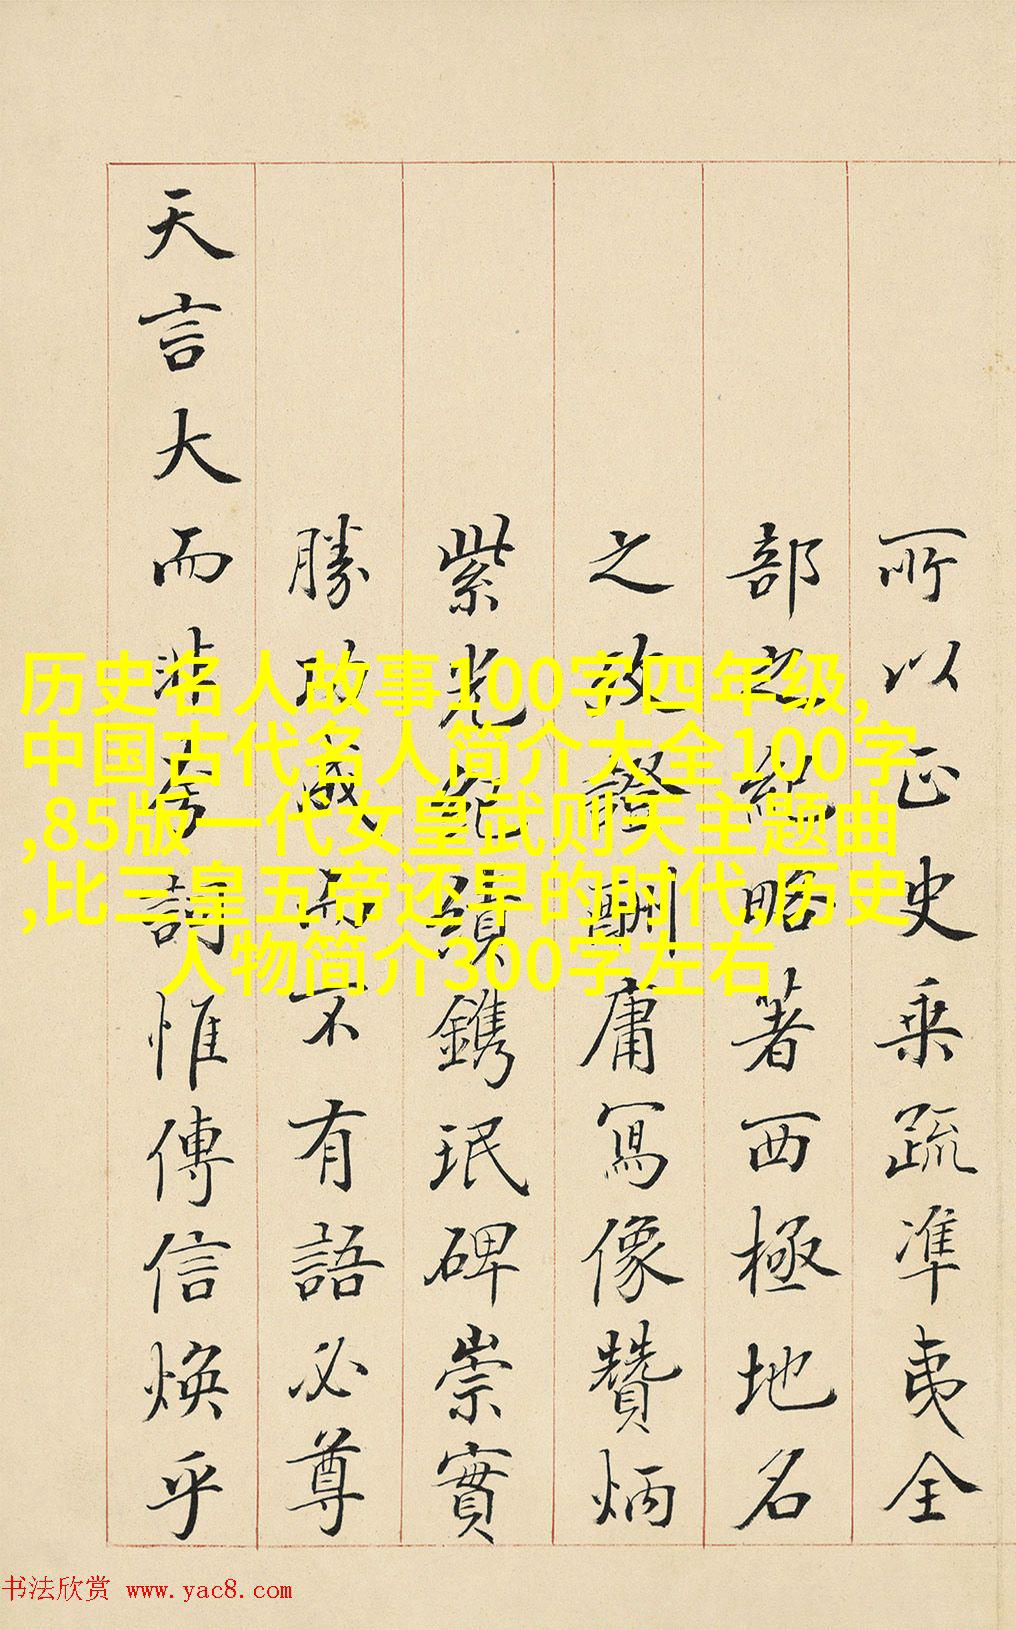 所以正史乘疏凖夷全
部之紀略著西極地名
之攷證酬庸寫像贊炳
紫光績鐫珉碑崇實
勝功成而不有語必尊
天言大而非夸詞惟傳信煥乎
历史名人故事100字四年级,
中国古代名人简介大全100字
,85版一代女皇武则天主题曲
,比三皇五帝还早的时代,历史
人物简介300字左右
书法欣赏 www.yac8.com